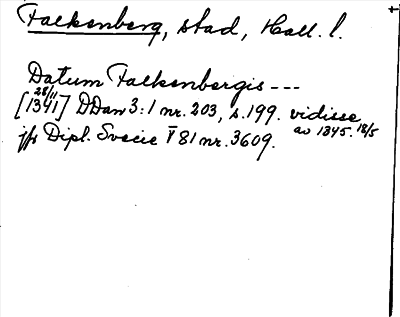 Falkenberg, stad, Hall. l.
Datum Falkenbergis ---
28/11
[1341] DDan 3:1 nr. 203, s. 199. vidisse
av 1345. 18/5
jfr Dipl. Svecie V 81 nr. 3609.